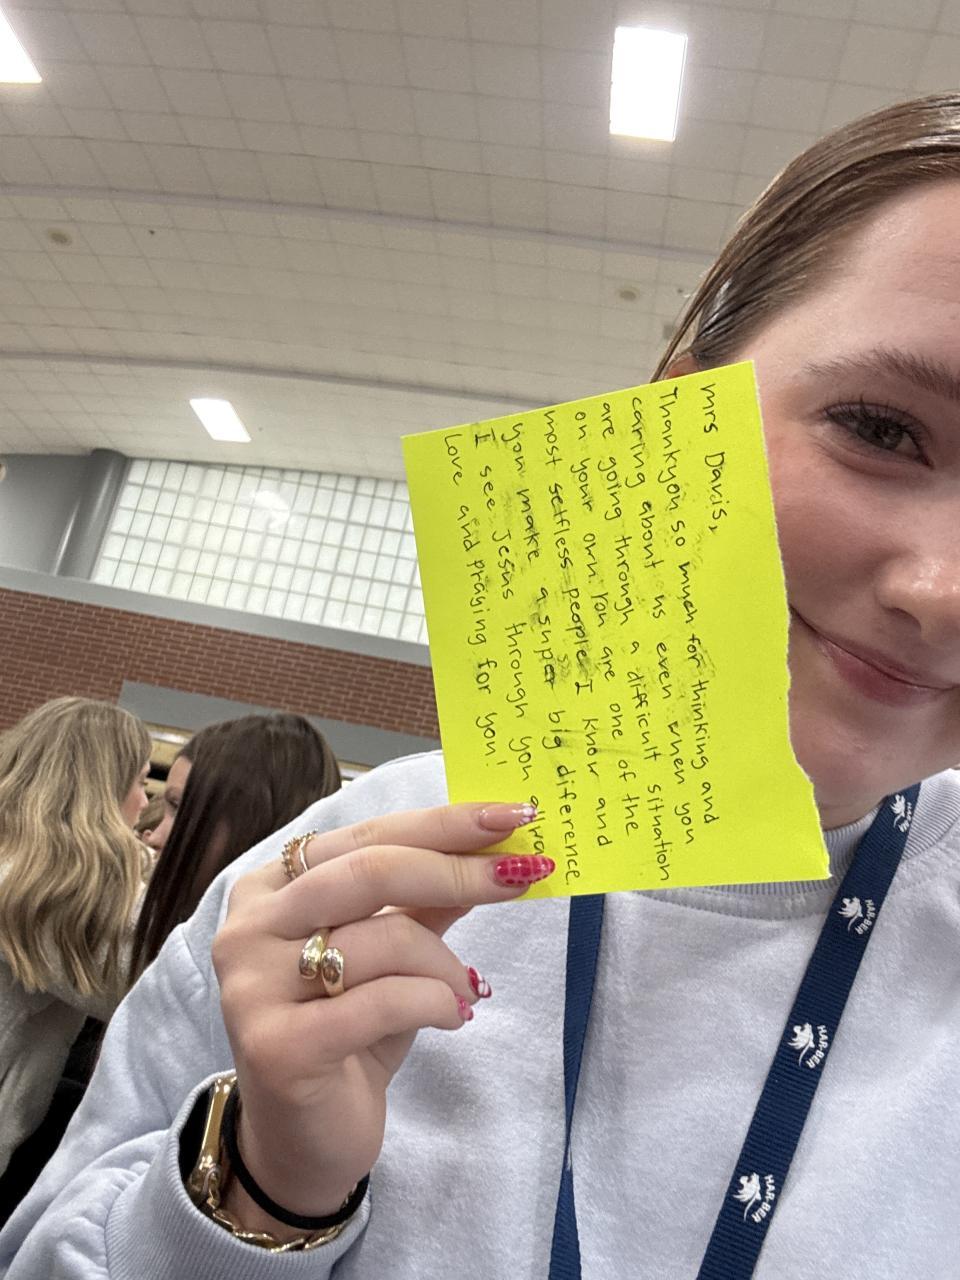 Mrs Davis,
Thankyou so much for thinking and
caring about us even when you
are going through a difficult situation
on your own. You are one of the
most selfless people I know and
you make a super big diference.
I see Jesus through you
Love and praying for you!
HAR-BER
HAR-BER
HAR-BER
HAR-BER